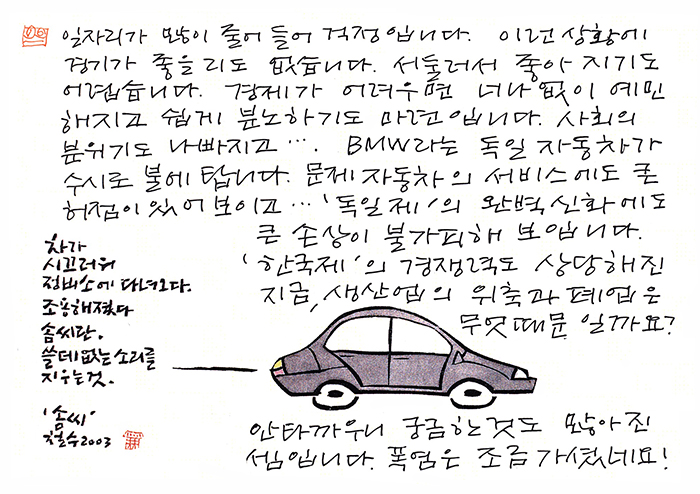 일자리가 많이 줄어 들어 걱정입니다. 이런 상황에
경기가 좋을 리도 없습니다. 서둘러서 좋아 지기도
어렵습니다. 경제가 어려우면 너나 없이 예민
해지고 쉽게 분노하기도 마련입니다. 사회의
분위기도 나빠지고···. BMW라는 독일 자동차가
수시로 불에 탑니다. 문제 자동차의 서비스에도 큰
허점이 있어 보이고··· '독일제'의 완벽신화에도
큰 손상이 불가피해 보입니다.
'한국제'의 경쟁력도 상당해진
지금, 생산업의 위축과 폐업은
무엇 때문 일까요?
차가
시끄러워
정비소에 다녀오다.
조용해졌다
솜씨란.
쓸데없는 소리를
지우는 것.
'솜씨'
철수2003
안타까우니 궁금한것도 많아진
셈입니다. 폭염은 조금 가셨네요!